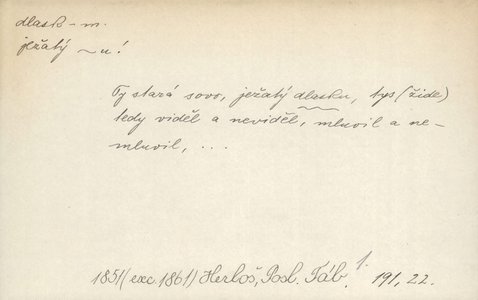 dlask – m.
ježatý ~ u!
Ty stará sovo, ježatý dlasku, tys (žide)
tedy viděl a neviděl, mluvil a ne–
mluvil, ...
1851 (exc. 1861) Herloš, Posl. Táb. 1. 191, 22.